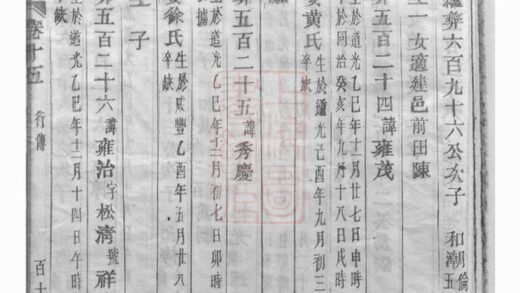 葬六百九十六公次子 和潮 倫五
生一女適建邑前田陳
葬五百二十四諱雍茂
生於道光乙巳年十二月廿七日申時
卒於同治癸亥年九月十八日戌時
安黃氏 生於道光己酉年九月初三
卒缺
葬五百二十五諱秀慶
生於道光乙巳年十二月初七日卯時
安徐氏 生於咸豐乙酉年五月廿八
卒缺
生子
葬五百二十六諱雍治字松清號祥
生於道光乙巳年十二月十四日午時
缺
卷十五 行傳 百十